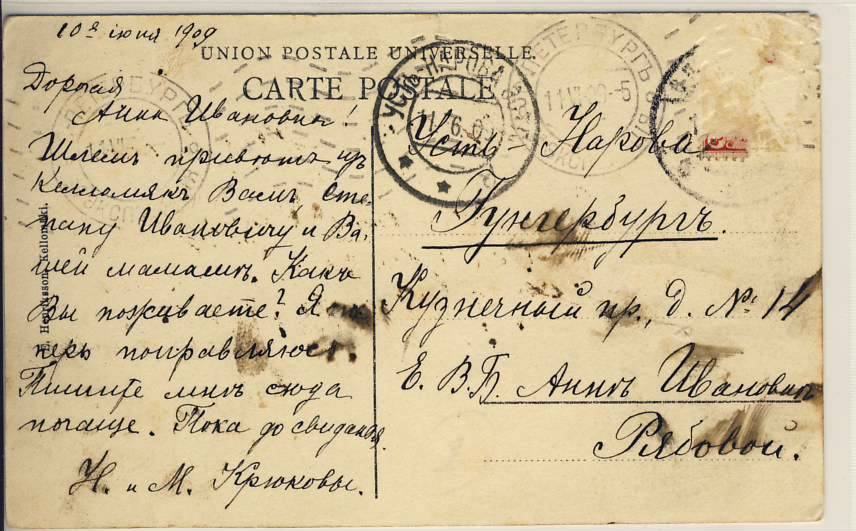 10го іюня 1909
UNION POSTALE UNIVERSELLE.
CARTE POSTALE
Дорогая
Анна Ивановна!
Шлемъ приветъ изъ
Келломякъ Вамъ Сте-
пану Ивановичу и Ва-
шей мамашѣ. Какъ
Вы поживаете? Я те-
перь поправляюсь.
Пишите мнѣ сюда
почаще. Пока до свиданья.
Н. и М. Крюковы.
Усть-Нарова
Гунгербургъ.
Кузнечный пр., д. № 14
Е. В Б. Аннѣ Ивановнѣ
Рябовой.
Henriksson, Kellomäki.
УСТЬ-НАРОВА
11 6 0
ПЕТЕРБУРГЪ